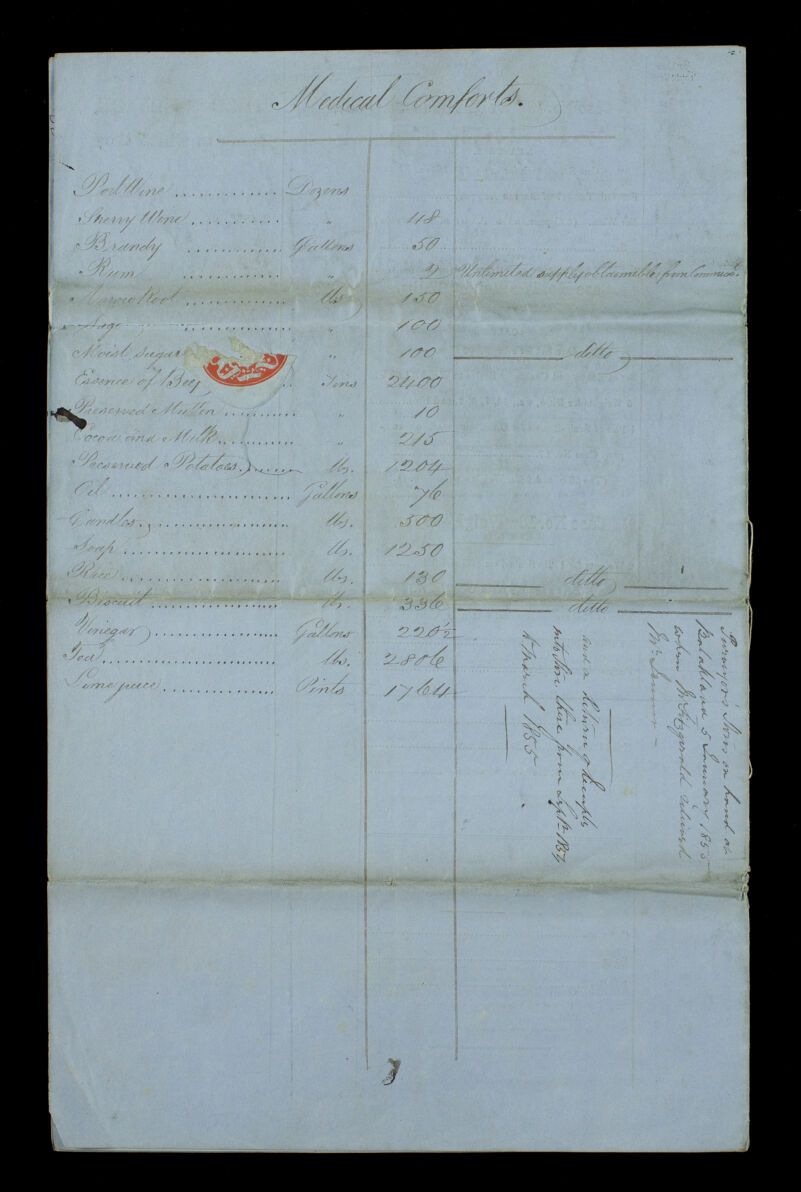 Medical Comforts.
Port Wine ............. Dozens
Sherry Wine ........... " 48
Brandy ............ Gallons 50
Rum ............ " 2 Unlimited supply obtainable from Commisst.
Arrow Root ............. lbs 150
Sago .............. " 100
Moist Sugar " 100 ditto
Essence of Beef .. Tins 2400
Preserved Mutton .......... " 10
Cocoa and Milk ........... " 215
Preserved Potatoes ........ lbs. 1204
Oil ....................... Gallons 76
Candles .................. lbs. 500
Soap ..................... lbs. 1250
Rice .................... lbs. 130 ditto
Biscuit ................. lbs. 336 ditto
Vinegar ................. Gallons 220½
Tea ..................... lbs. 2806
Lime juice .............. Pints 1764
Purveyor's Stores on hand at
Balaklava 5 January 1855
when Mr. Fitzgerald relieved
Mr.
and a Return of Receipts
into Store there from Septr. 1854
to March 1855